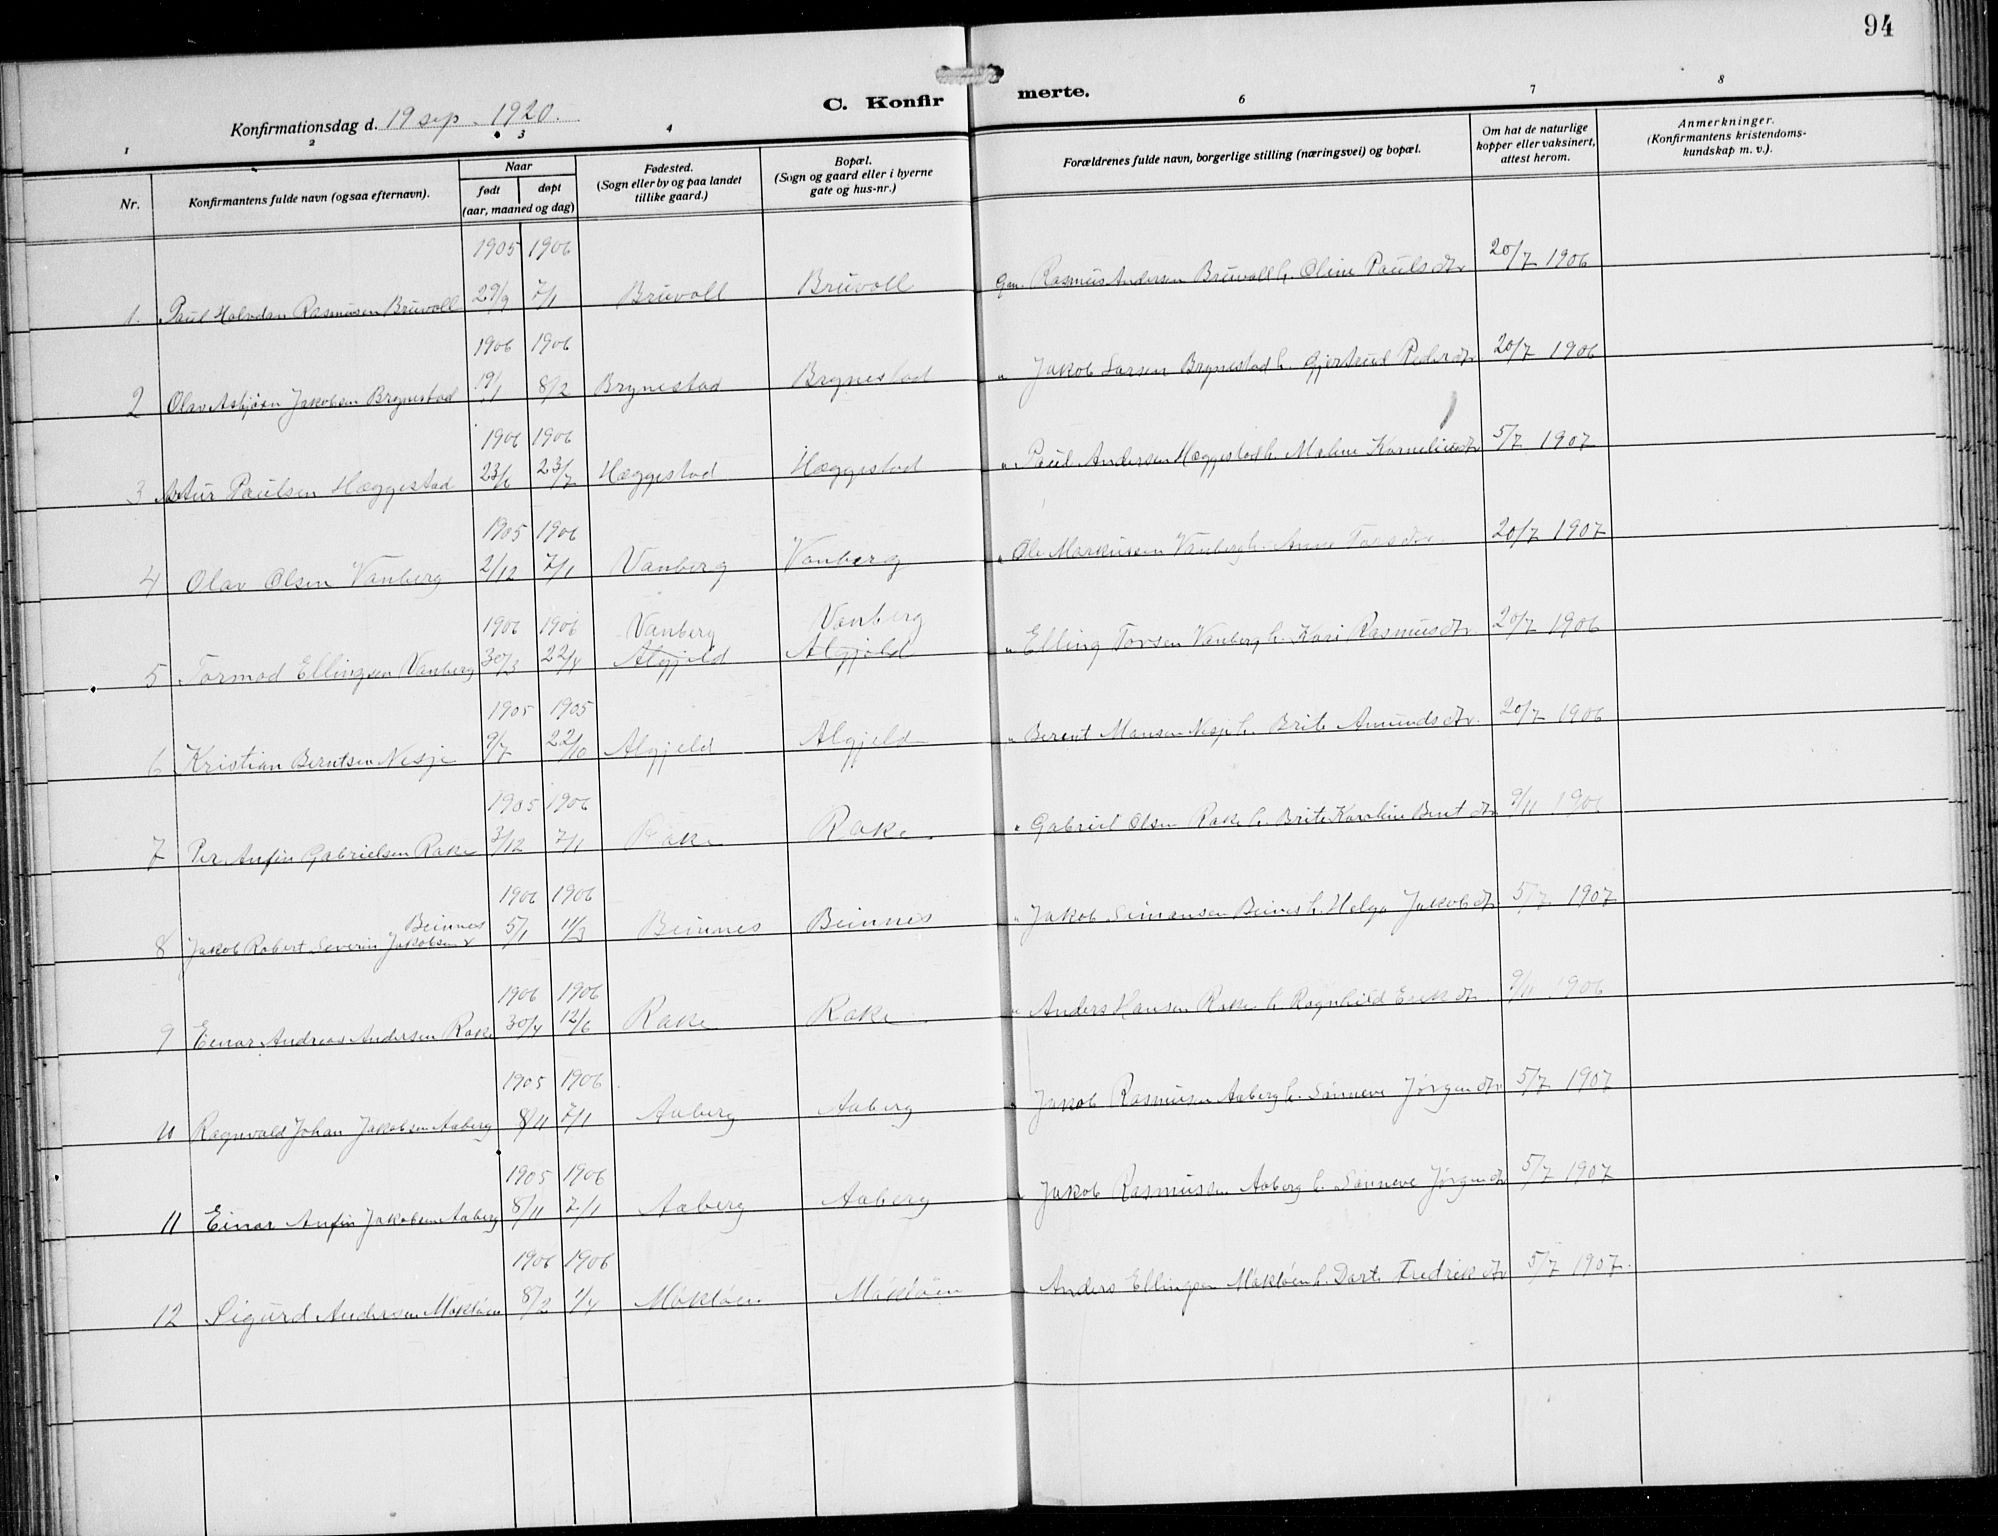 94
C. Konfirmerte.
Konfirmationsdag d. 19 sep. 1920.
1 2 3 4 6 7 8
Nr. Konfirmantens fulde navn (ogsaa efternavn). Naar født døpt (aar, maaned og dag) Fødested. (Sogn eller by og paa landet tillike gaard.) Bopæl. (Sogn og gaard eller i byerne gate og hus-nr.) Forældrenes fulde navn, borgerlige stilling (næringsvei) og bopæl. Om hat de naturlige kopper eller vaksinert, attest herom. Anmerkninger. (Konfirmantens kristendomskundskap m. v.).
1905 1906
1. Paul Halvdan Rasmusen Bruvoll 29/9 7/1 Bruvoll Bruvoll Gm. Rasmus Andersen Bruvoll h. Oline Pauls dtr 20/7 1906
1906 1906
2 Olav Asbjørn Jakobsen Brynestad 19/1 8/2 Brynestad Brynestad " Jakob Larsen Brynestad h. Gjertrud Peder dtr 20/7 1906
1906 1906
3 Artur Paulsen Hæggestad 23/6 23/7 Hæggestad Hæggestad " Paul Andersen Hæggestad h. Malene Kornelius dtr 5/7 1907
1905 1906
4 Olav Olsen Vanberg 2/12 7/1 Vanberg Vanberg " Ole Markussen Vanberg h. Anne Tors dtr 20/7 1907
1906 1906 Vanberg Vanberg
5 Tormod Ellingsen Vanberg 30/3 22/4 Algjeld Algjeld " Elling Torsen Vanberg h. Kari Rasmus dtr. 20/7 1906
1905 1905
6 Kristian Berntsen Nesje 9/7 22/10 Algjeld Algjeld " Berent Mansen Nesje h. Brite Amunds dtr. 20/7 1906
1905 1906
7 Per Anfin Gabrielsen Rake 3/12 7/1 Rake Rake " Gabriel Olsen Rake h. Brite Karoline Bent dtr 9/11 1906
1906 1906
Beinnes
8 Jakob Robert Severin Jakobsen 5/1 11/3 Beinnes Beinnes " Jakob Simonsen Beines h. Helga Jakob dtr 5/7 1907
1906 1906
9 Einar Andreas Andersen Rake 30/4 12/6 Rake Rake " Anders Hansen Rake h. Ragnhild Erik dtr. 9/11 1906
1905 1906
10 Ragnvald Johan Jakobsen Aaberg 8/11 7/1 Aaberg Aaberg " Jakob Rasmusen Aaberg h. Sønneve Jørgen dtr 5/7 1907
1905 1906
11 Einar Anfin Jakobsen Aaberg 8/11 7/1 Aaberg Aaberg " Jakob Rasmussen Aaberg h. Sønneve Jørgen dtr 5/7 1907
1906 1906
12 Sigurd Andersen Møkløen 8/2 1/4 Møkløen Møkløen " Anders Ellingsen Møkløen h. Dorte Fredrik dtr 5/7 1907.